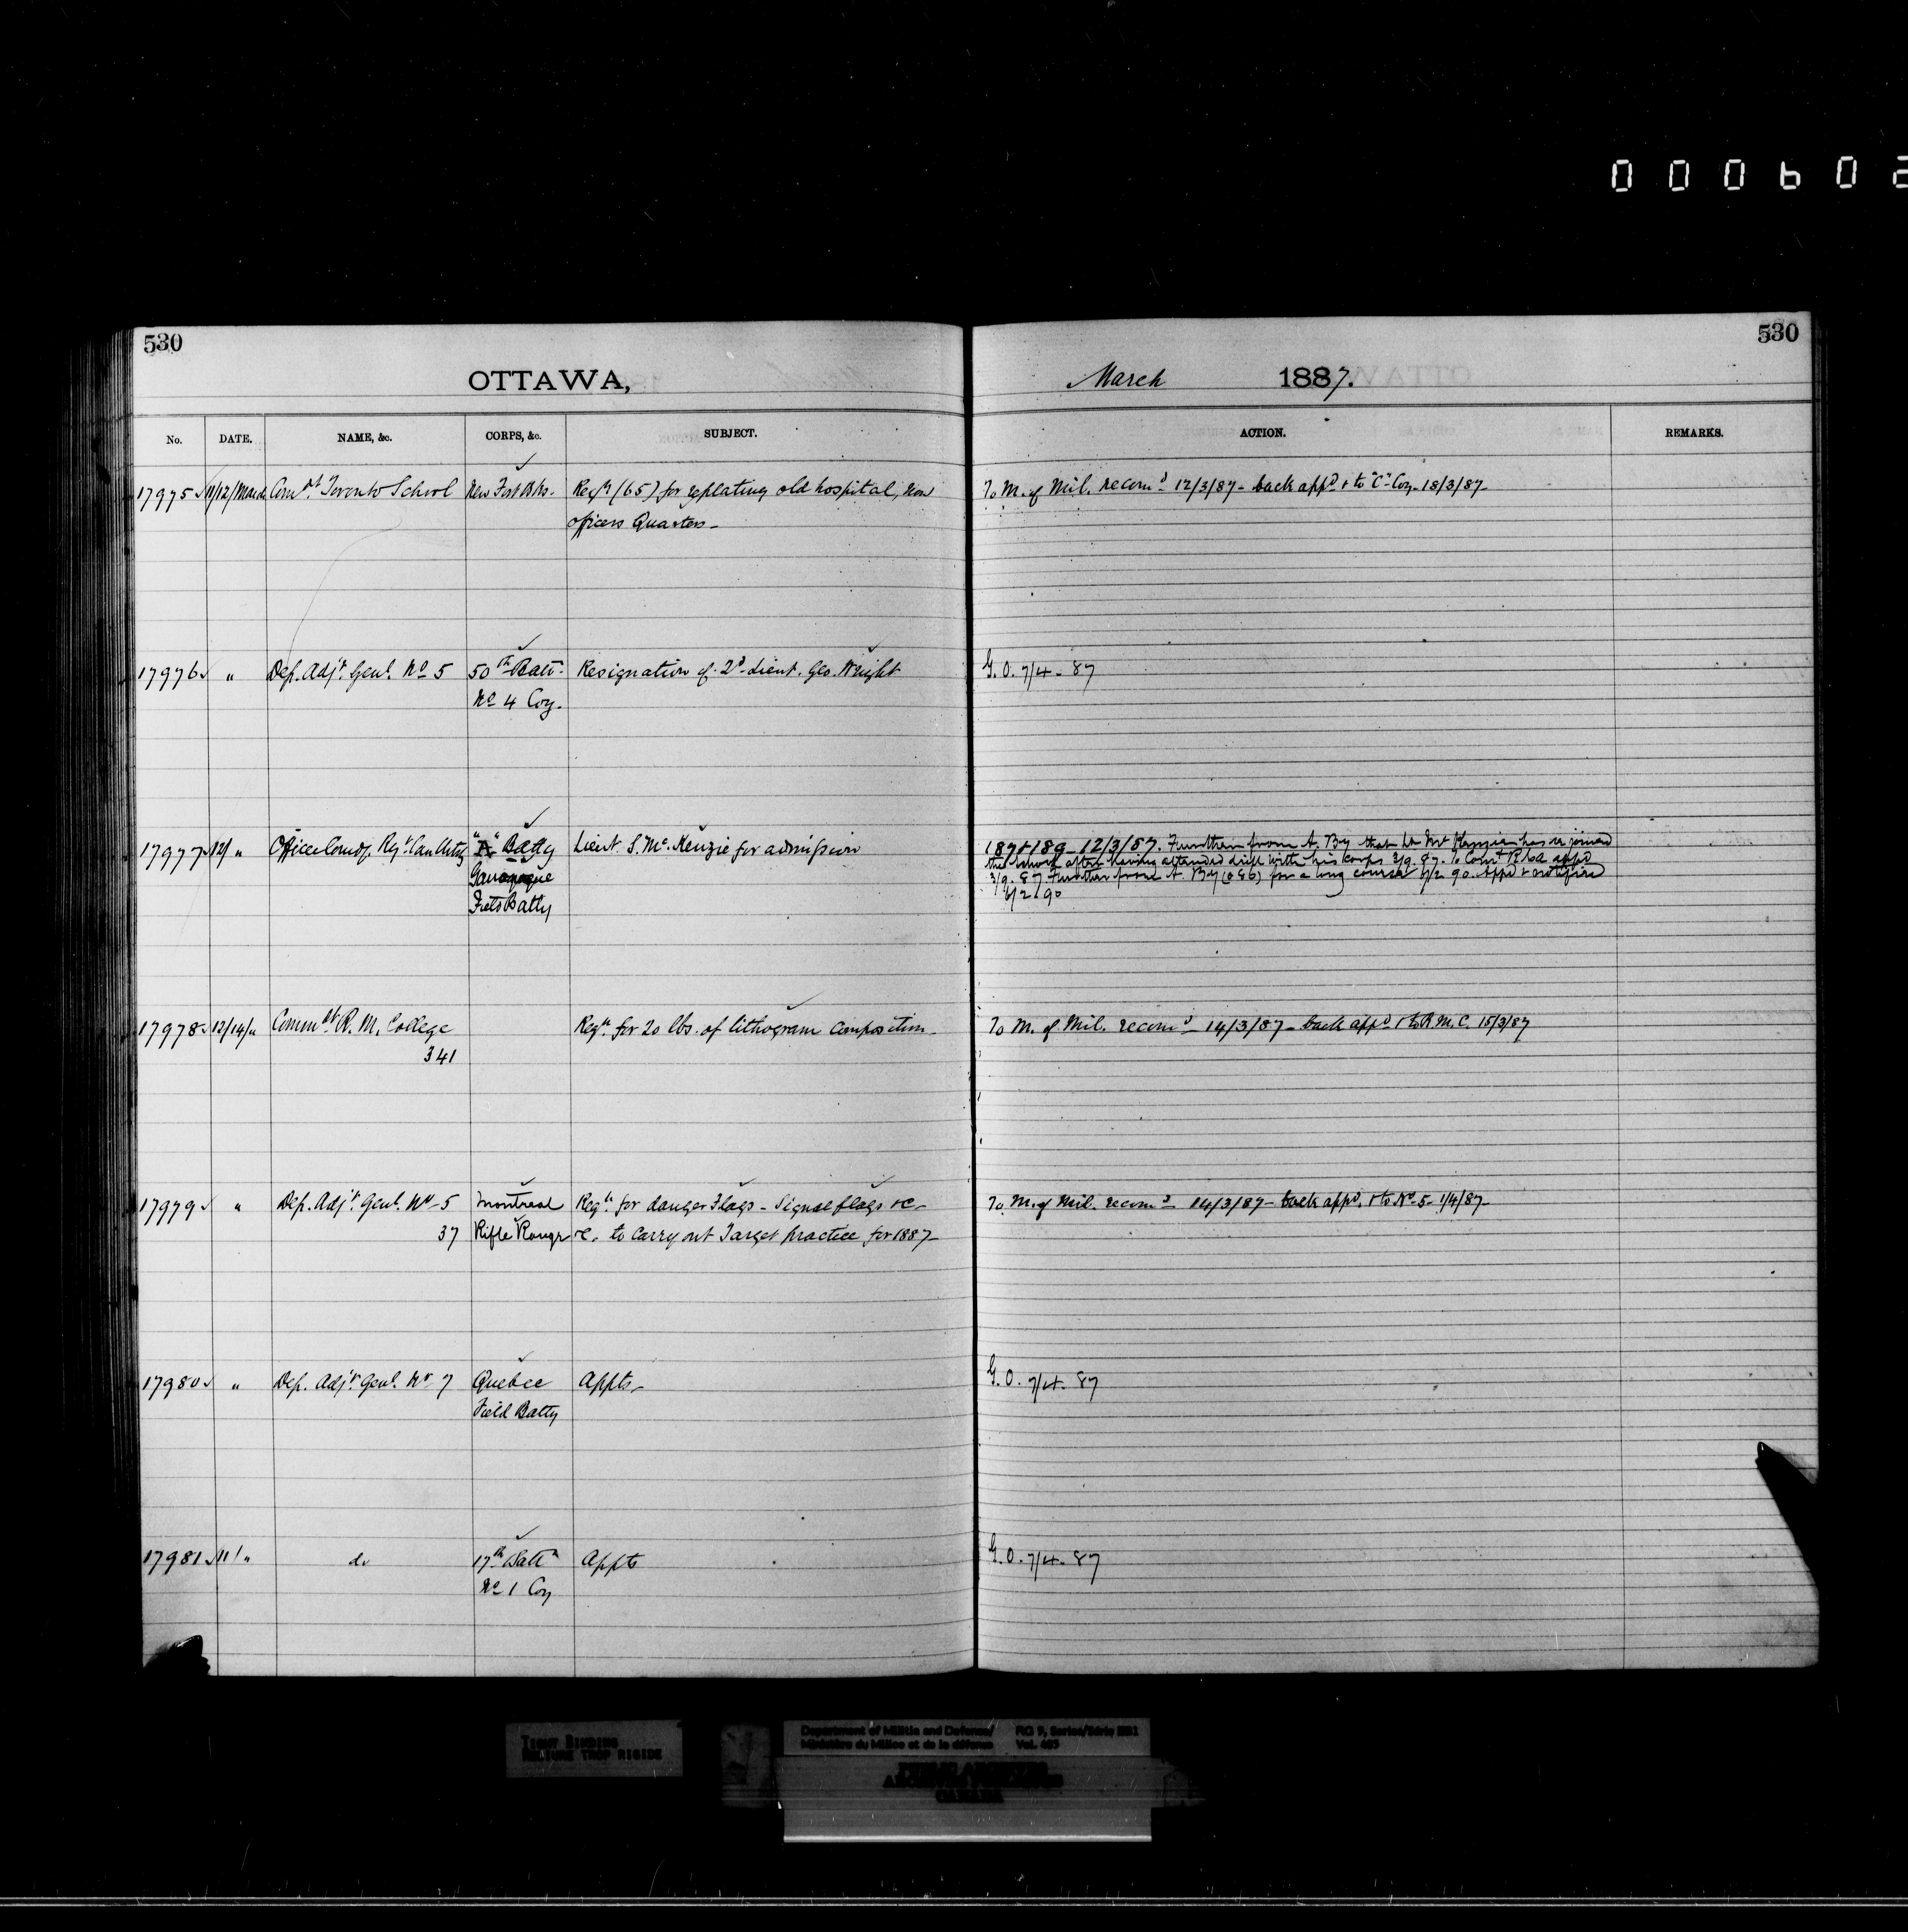 000602
530
530
OTTAWA,
March 1887.
No. DATE. NAME, &c. CORPS, &c. SUBJECT. ACTION. REMARKS.
17975 11/12/March Comdt Toronto School New Fort Bks. Reqn (65) for replating old hospital, now To M. of Mil. recomd 12/3/87 - back appd & to "C" Coy. 18/3/87
officers Quarters -
17976 " Dep. Adjt. Genl. No 5 50th Batt. Resignation of 2d Lieut. Geo. Wright G. O. 7/4 - 87
No 4 Coy.
17977 12/ " Officer Comdg. Regt. Can Arty "A" Batty Lieut. S. Mc. Kenzie for admission 12/3/87. Further from A. By that Lt Mc Kenzie has rejoined
Gananoque the school after having attended drill with his corps 3/9. 87. To Comt R.C.A appd
Field Batty 3/9. 87 Further from A. By (086) for a long course 6/2 90. Appd & notified
6/2/90
17978 12/14/" Commdt R. M. College Reqn. for 20 lbs. of lithogram composition - To M. of Mil. recomd - 14/3/87 - back appd & to R.M.C. 15/3/87
341
17979 " Dep. Adjt. Genl. No 5 Montreal Reqn. for danger Flags - Signal flags &c - To M. of Mil. recomd - 14/3/87 - back appd. & to No 5 - 1/4/87 -
37 Rifle Range &c. to carry out Target practice for 1887 -
17980 " Dep. Adjt. Genl. No 7 Quebec Appts - G. O. 7/4. 87
Field Batty
17981 11/" do 17th Battn Appts G. O. 7/4. 87
No 1 Coy
TIGHT BINDING
RELIURE TROP RIGIDE
Department of Militia and Defence/ RG 9, Series/Série
Ministère du Milice et de la défense Vol.
PUBLIC ARCHIVES
ARCHIVES PUBLIQUES
CANADA